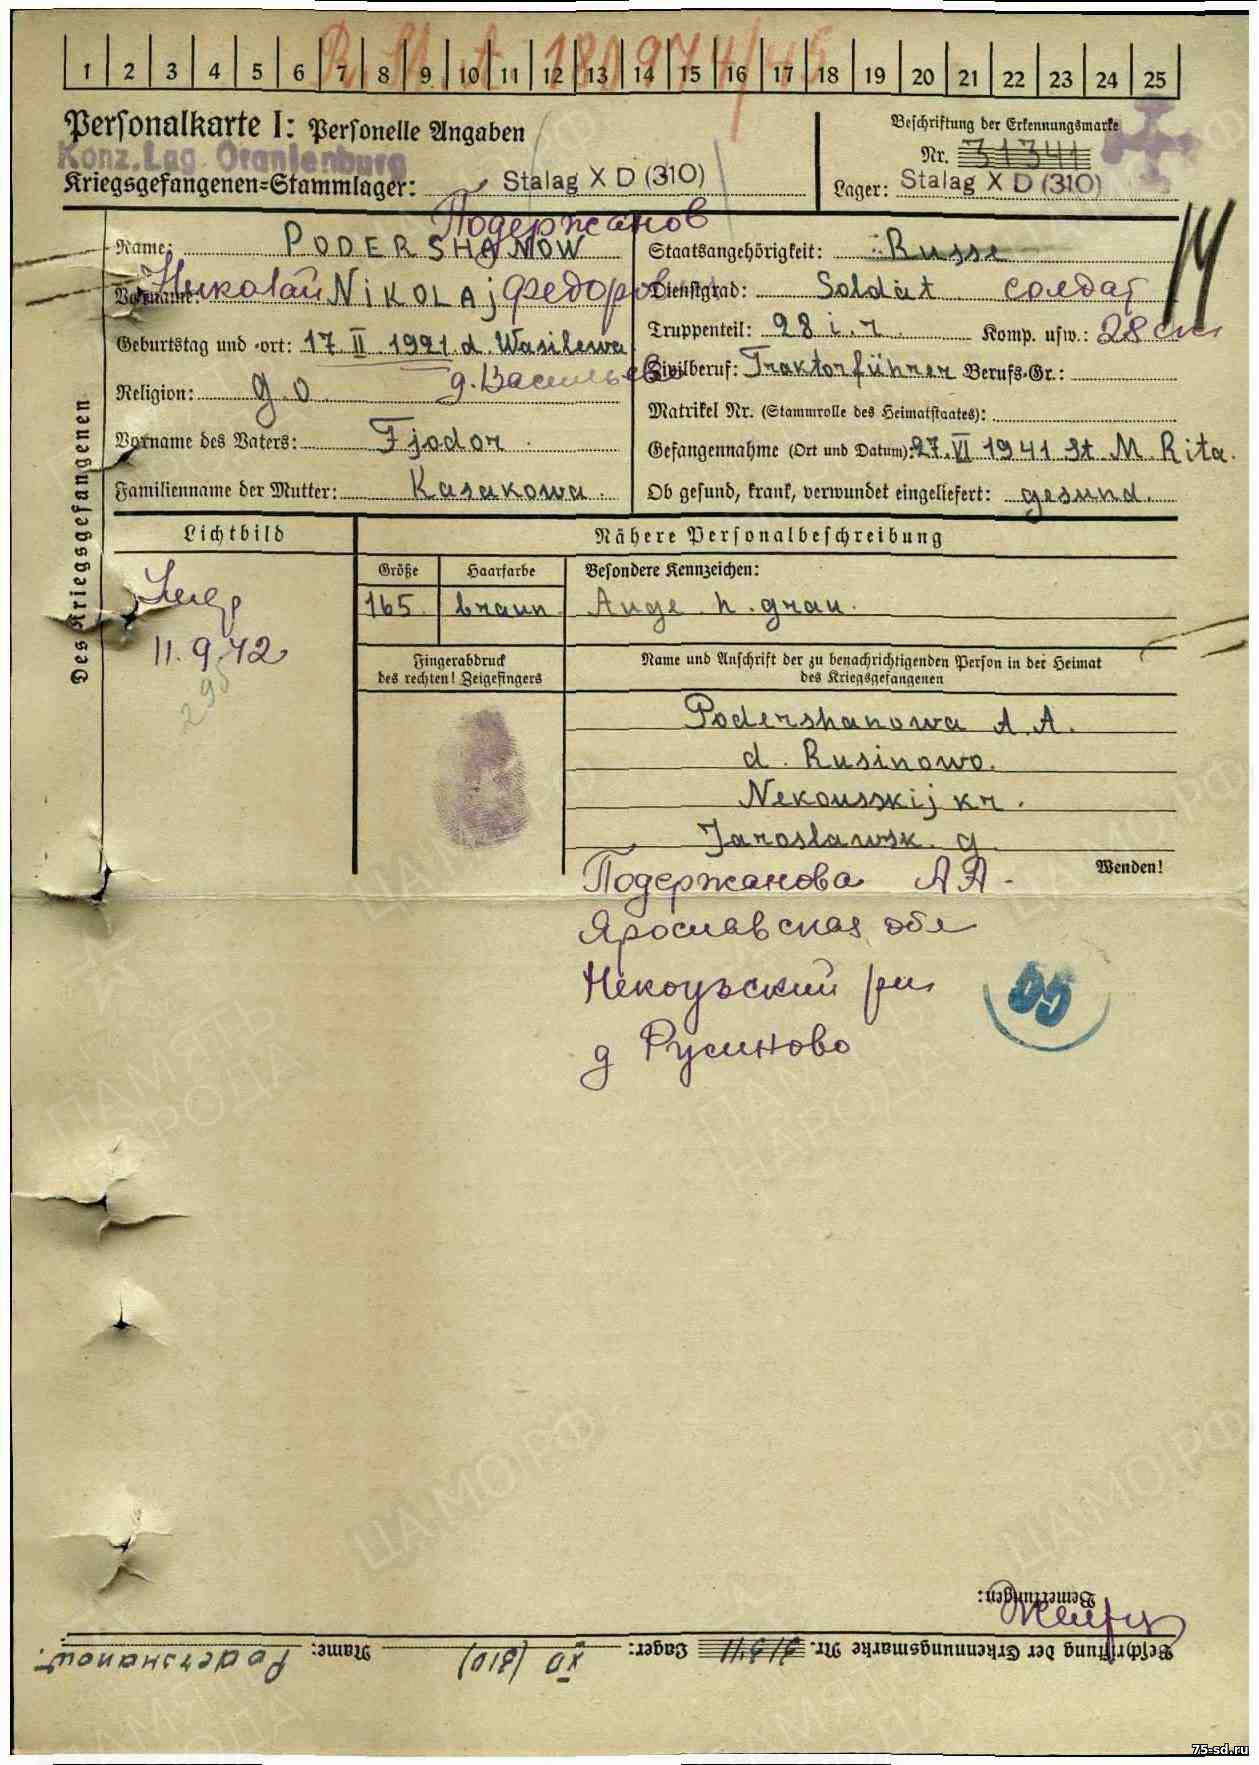 R. St. 180974/45
1 2 3 4 5 6 7 8 9 10 11 12 13 14 15 16 17 18 19 20 21 22 23 24 25
Personalkarte I: Personelle Angaben
Konz.Lag. Oranienburg
Kriegsgefangenen=Stammlager: Stalag X D (310)
Beschriftung der Erkennungsmarke
Nr. 31341
Lager: Stalag X D (310)
14
Des Kriegsgefangenen
Подержанов
Name: PODERSHANOW
Николай NIKOLAJ Федоров
Vorname:
Geburtstag und -ort: 17. II 1921. d. Wasilewa
д. Васильево
Religion: g. o
Vorname des Vaters: Fjodor
Familienname der Mutter: Kasakowa.
Staatsangehörigkeit: Russe
Dienstgrad: Soldat солдат
Truppenteil: 28 i. r. Komp. usw.: 28 сп
Zivilberuf: Traktorführer Berufs-Gr.:
Matrikel Nr. (Stammrolle des Heimatstaates):
Gefangennahme (Ort und Datum): 27. VI 1941 St. M. Rita.
Ob gesund, krank, verwundet eingeliefert: gesund.
Lichtbild
11.9.42
295
Nähere Personalbeschreibung
Größe Haarfarbe Besondere Kennzeichen:
165. braun. Auge h. grau.
Fingerabdruck
des rechten! Zeigefingers
Name und Anschrift der zu benachrichtigenden Person in der Heimat
des Kriegsgefangenen
Podershanowa A. A.
d. Rusinowo.
Nekousskij kr.
Jaroslawsk. g.
Wenden!
Подержанова А А.
Ярославская обл
Некоузский р-н
д Русиново
Bemerkungen:
Beschriftung der Erkennungsmarke Nr. 31341 Lager: XD (310) Name: Podershanow.
ПАМЯТЬ НАРОДА
ЦАМО.РФ
75-sd.ru